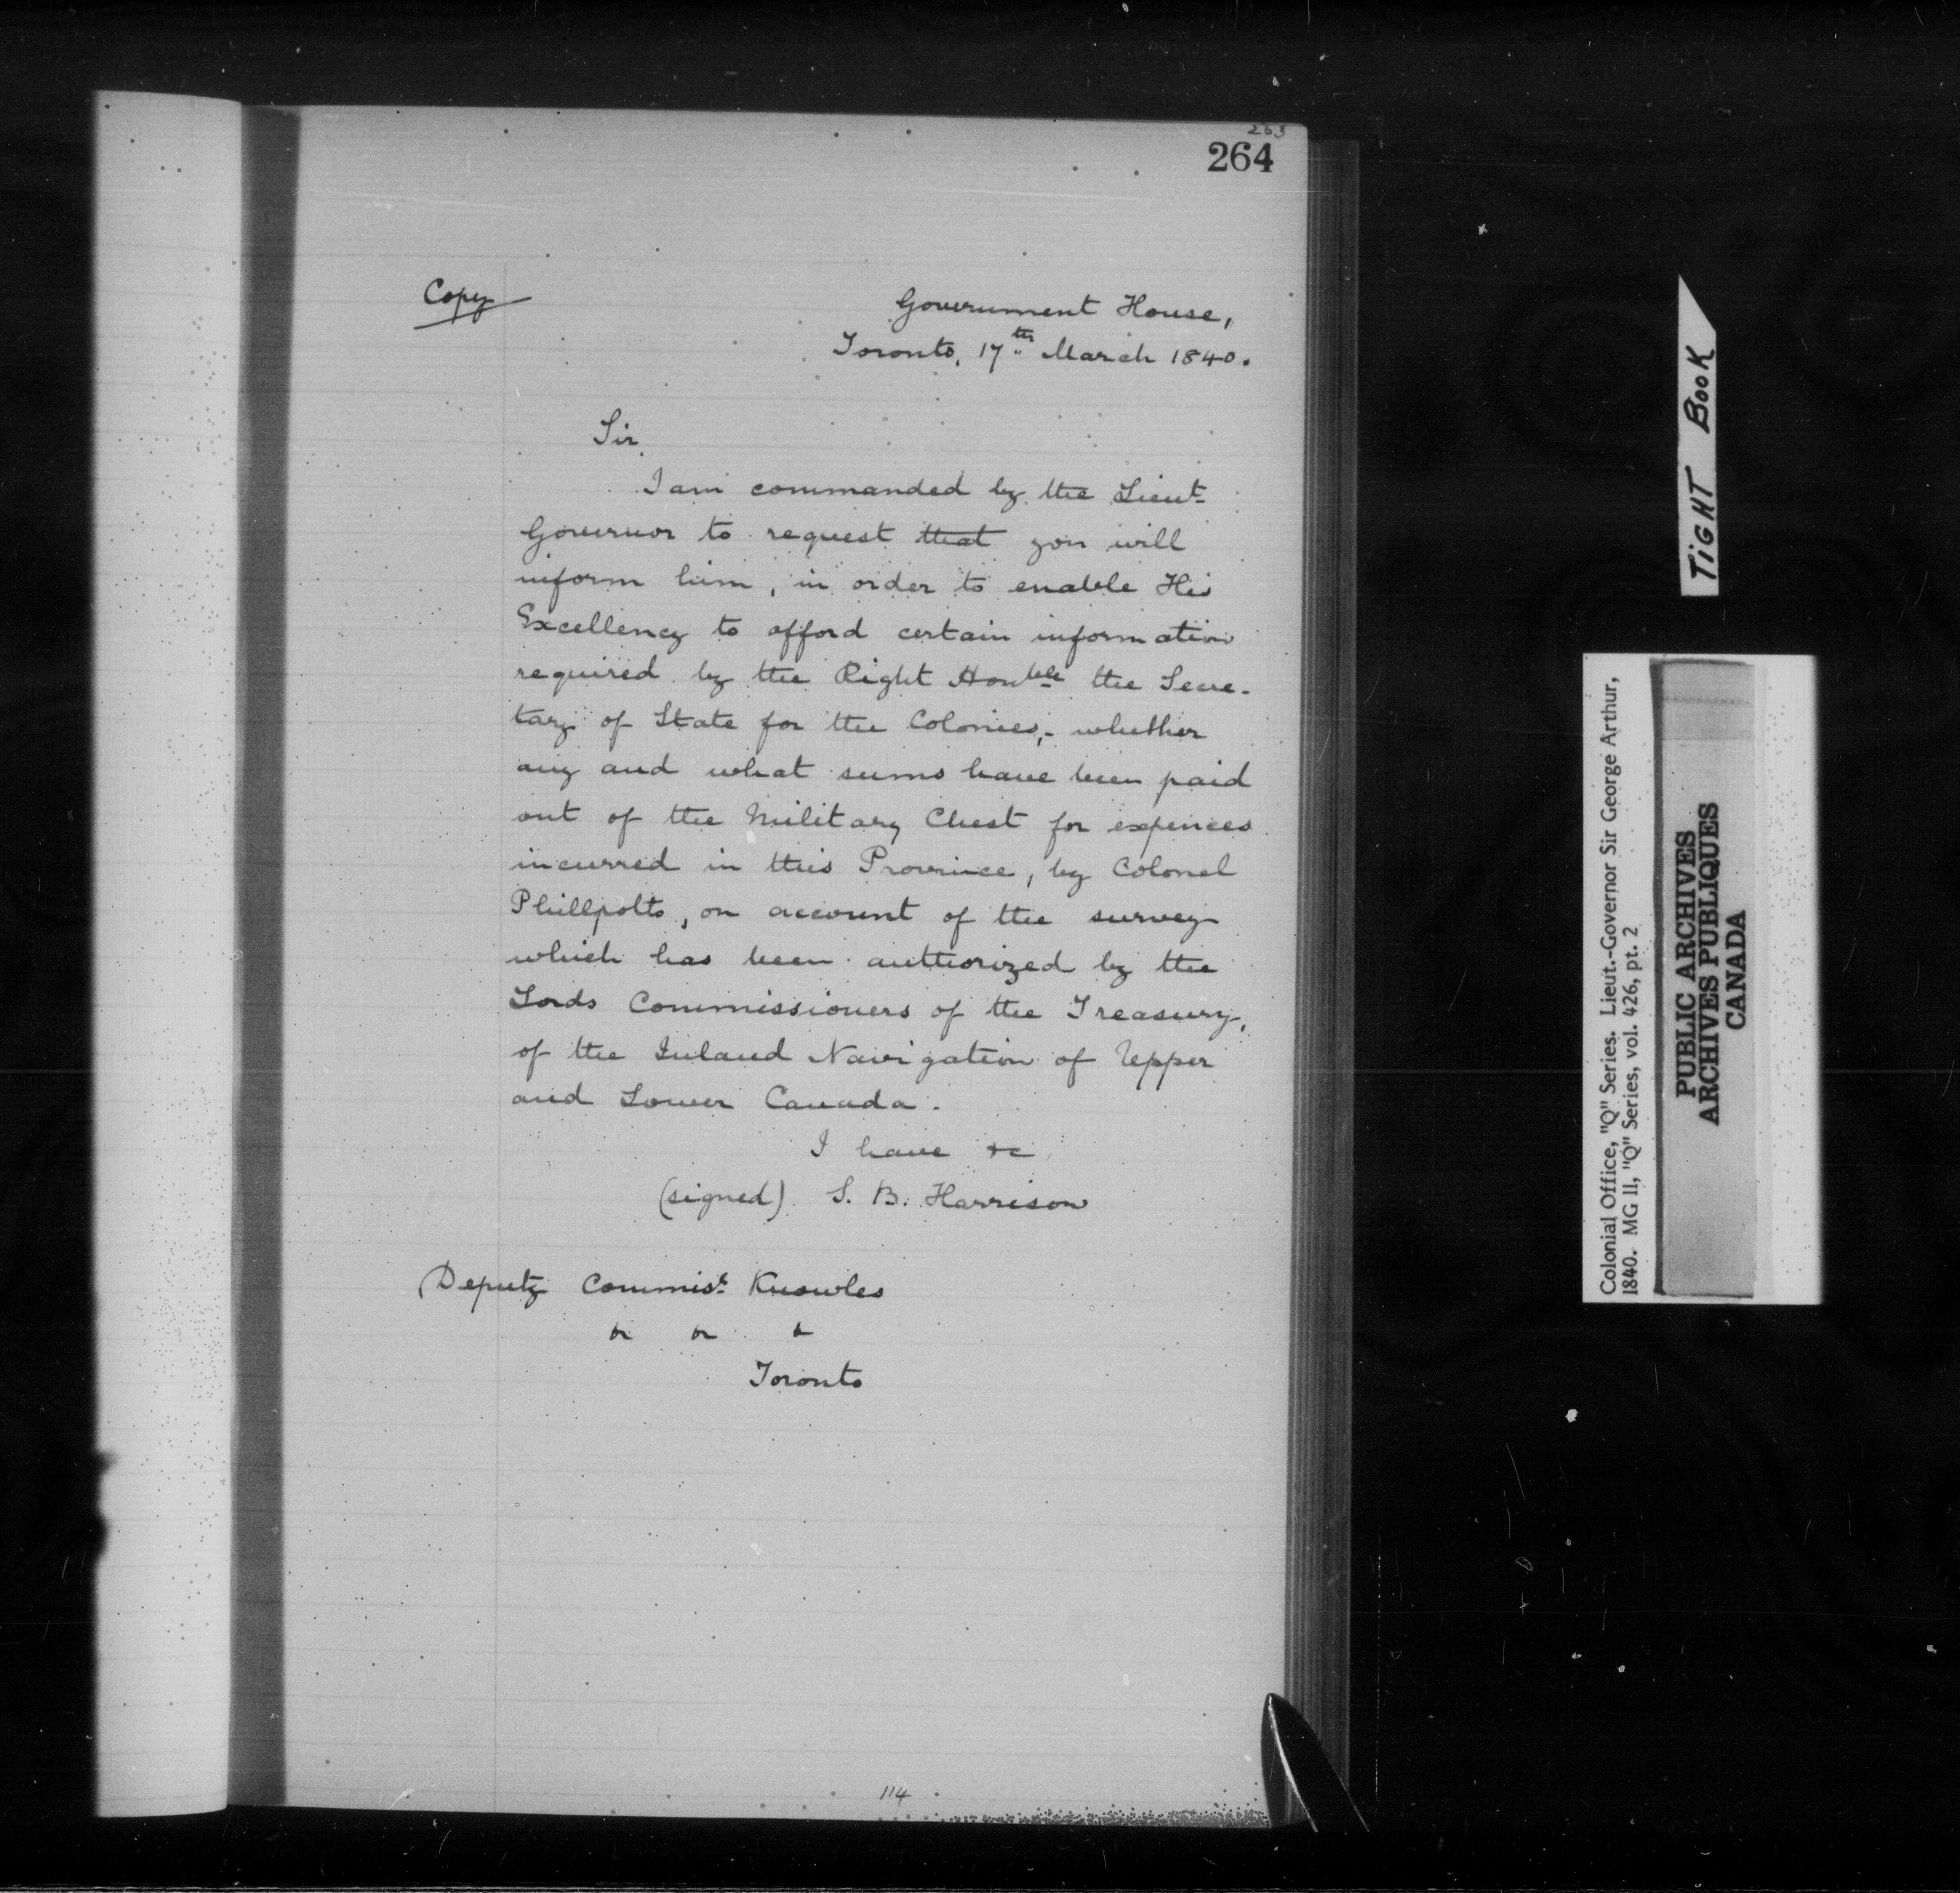 263
264
Copy
Government House,
Toronto, 17th March 1840.
Sir
I am commanded by the Lieut-
Governor to request that you will
inform him, in order to enable His
Excellency to afford certain information
required by the Right Honble the Secre-
tary of State for the Colonies,- whether
any and what sums have been paid
out of the Military Chest for expences
incurred in this Province, by Colonel
Phillpotts, on account of the survey
which has been authorized by the
Lords Commissioners of the Treasury,
of the Inland Navigation of Upper
and Lower Canada.
I have &c
(signed) S. B. Harrison
Deputy Commisy Knowles
& & &
Toronto
114
TIGHT BOOK
Colonial Office, "Q" Series. Lieut.-Governor Sir George Arthur,
1840. MG 11, "Q" Series, vol. 426, pt. 2
PUBLIC ARCHIVES
ARCHIVES PUBLIQUES
CANADA